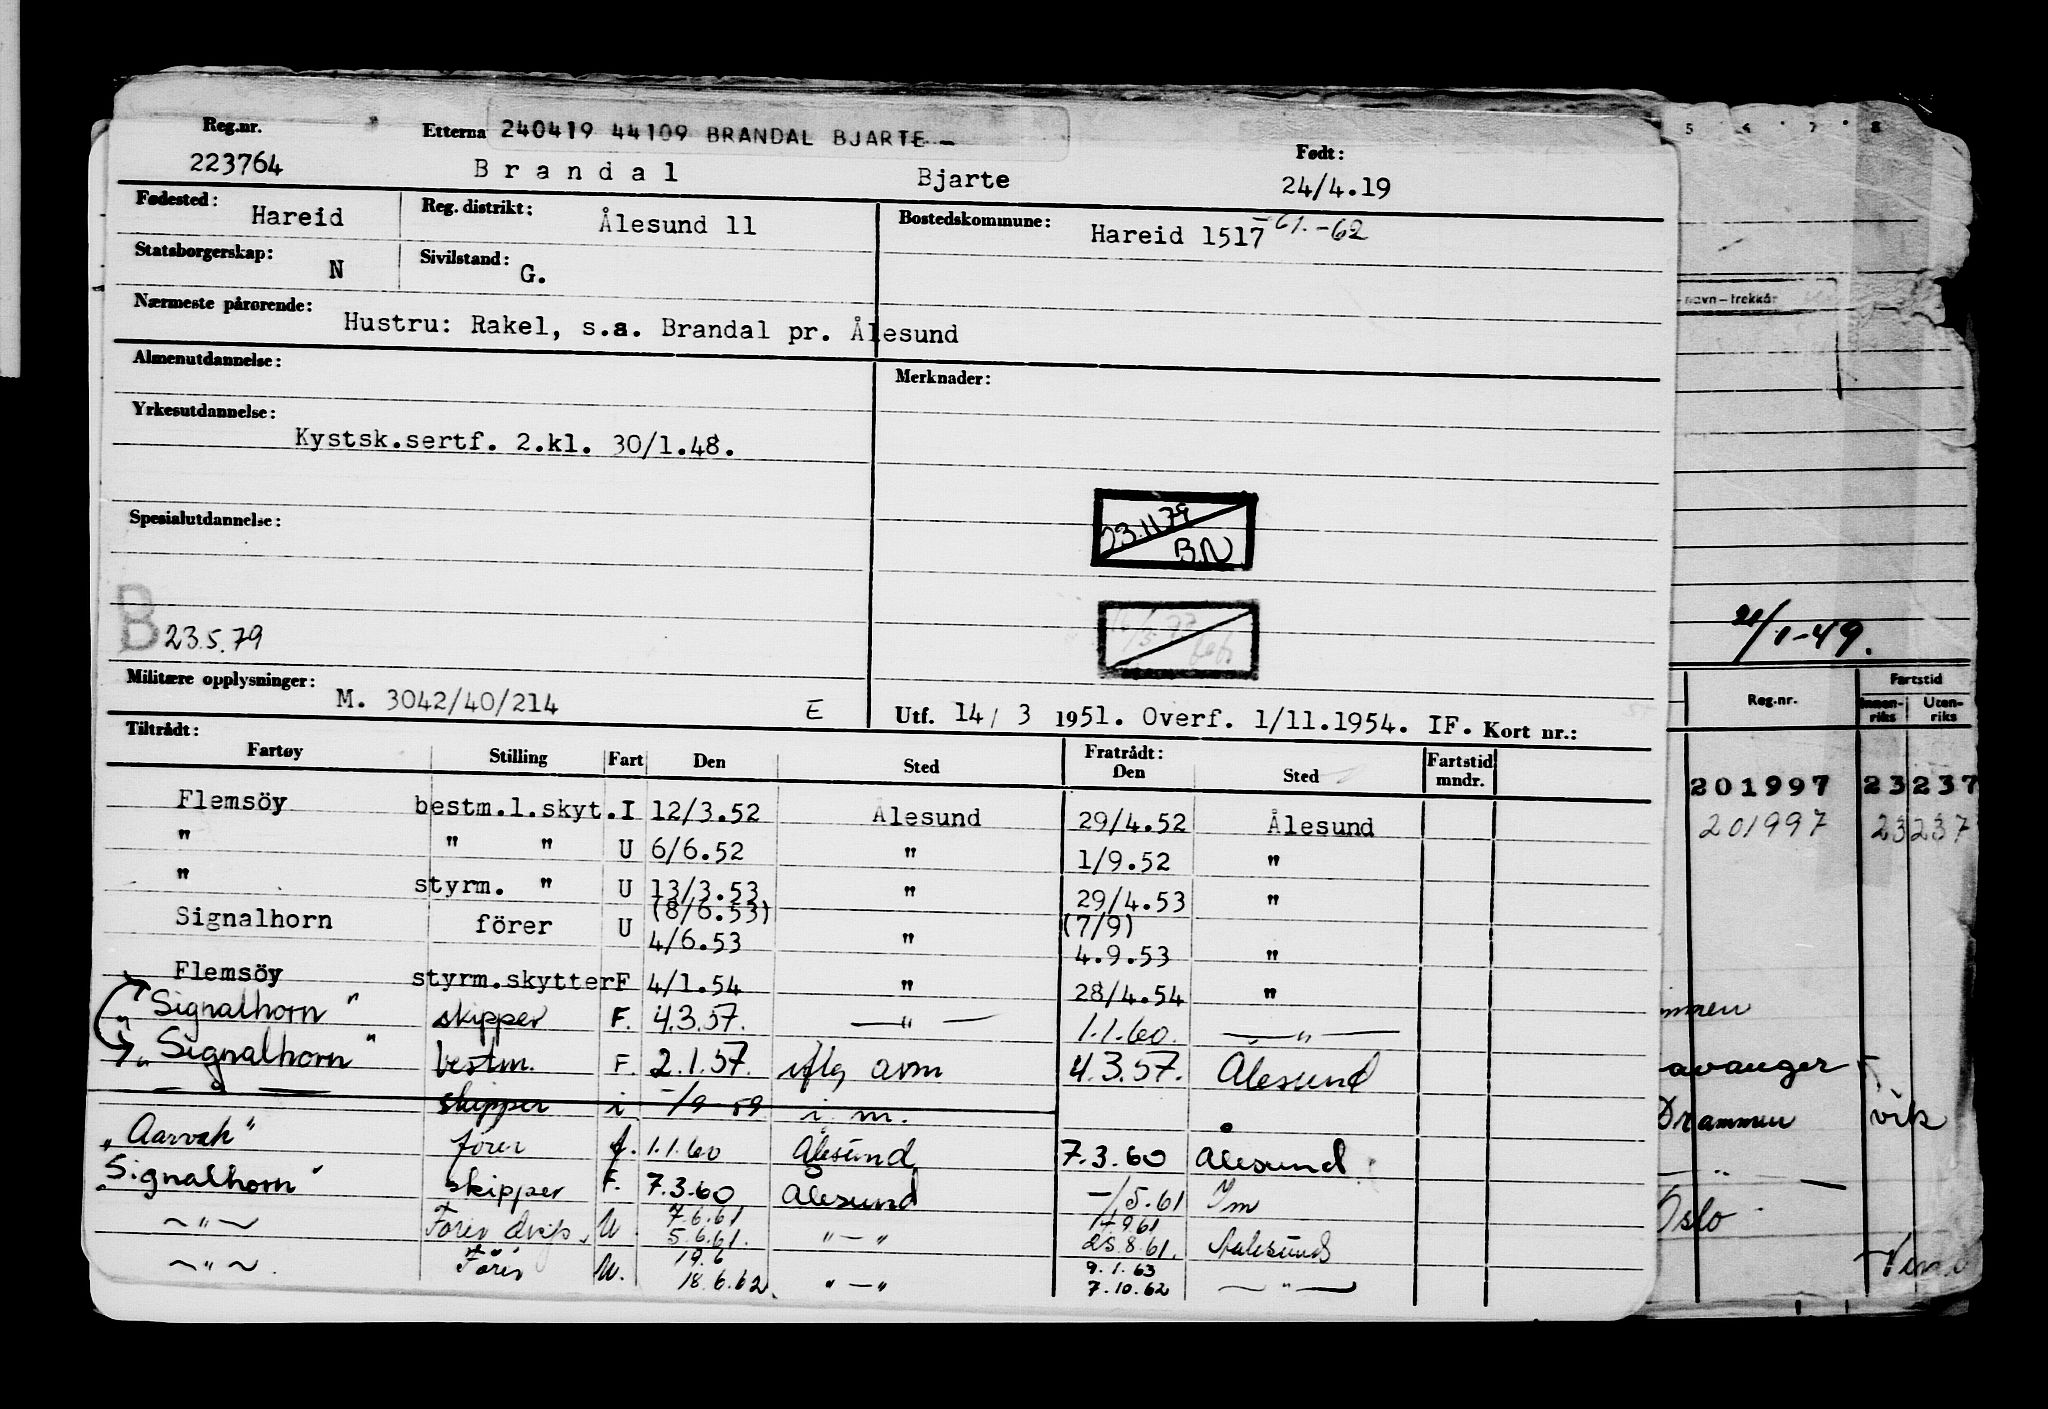 Reg.nr. Etterna 240419 44109 BRANDAL BJARTE - Født:
223764 Brandal Bjarte 24/4.19
Fødested: Hareid Reg. distrikt: Ålesund 11 Bostedskommune: Hareid 1517 - 61. - 62
Statsborgerskap: N Sivilstand: G.
Nærmeste pårørende: Hustru: Rakel, s.a. Brandal pr. Ålesund
Almenutdannelse: Merknader:
Yrkesutdannelse:
Kystsk.sertf. 2.kl. 30/1.48.
Spesialutdannelse: 23.11.79
B.N
B 23.5.79
Militære opplysninger: M. 3042/40/214 E Utf. 14/3 1951. Overf. 1/11.1954. IF. Kort nr.:
Tiltrådt: Fratrådt:
Fartøy Stilling Fart Den Sted Den Sted Fartstid mndr.
Flemsöy bestm.l.skyt. I 12/3.52 Ålesund 29/4.52 Ålesund
" " " U 6/6.52 " 1/9.52 "
" styrm. " U 13/3.53 " 29/4.53 "
(8/6.53) (7/9)
Signalhorn förer U 4/6.53 " 4.9.53 "
Flemsöy styrm.skytter F 4/1.54 " 28/4.54 "
"Signalhorn" skipper F. 4.3.57. — " — 1.1.60. — " —
"Signalhorn" bestm. F. 2.1.57. iflg avm 4.3.57. Ålesund
— " — skipper i -/9-59 i. m.
"Aarvak" fører f. 1.1.60 Ålesund 7.3.60 Ålesund
"Signalhorn" skipper F. 7.3.60 Ålesund -/5.61 Im
7.6.61
— " — Fører U. 5.6.61. " — " 25.8.61. Aalesund
19.6 9.1.63
— " — Fører U. 18.6.62. " — " 7.10.62 — " —
5 6 7 8
navn - trekkår
21/1-49.
Reg.nr. Fartstid
Innen-riks Uten-riks
201997 23 237
201997 23 237
mmen
avanger
Drammen vik
— " —
Oslo